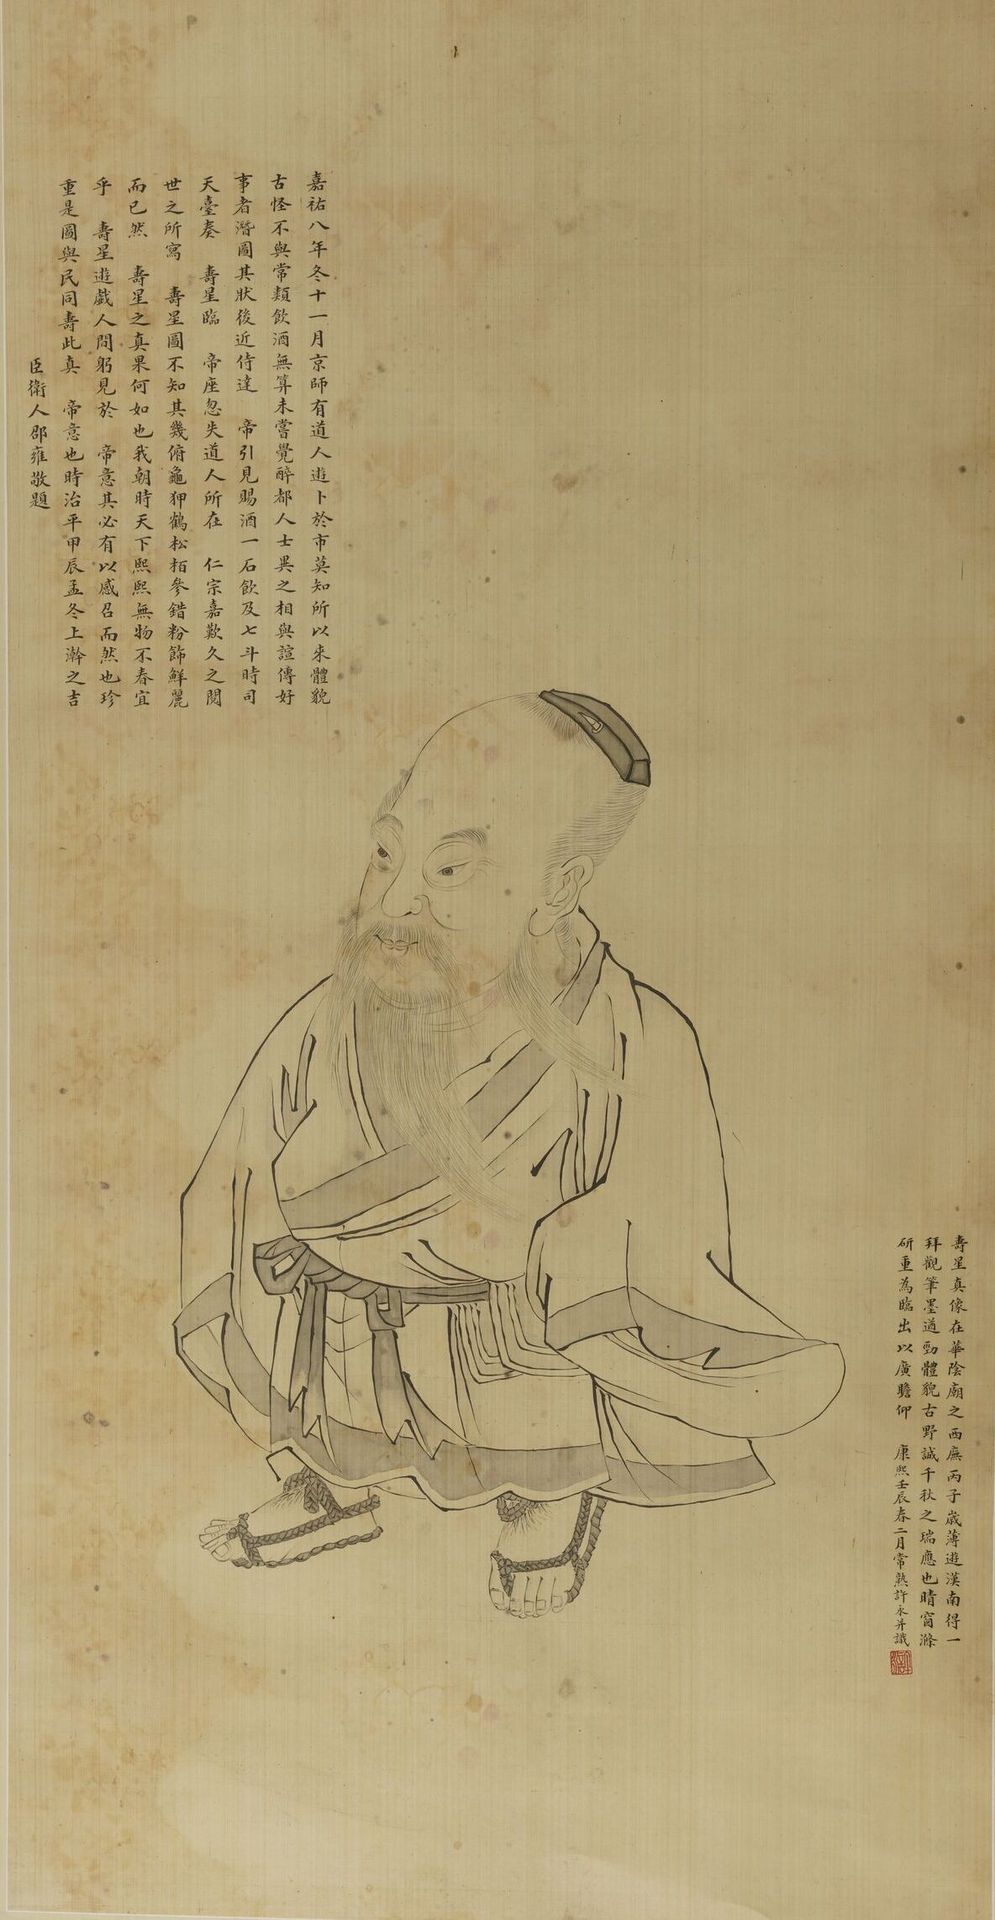 嘉祐八年冬十一月京師有道人遊卜於市莫知所以來體貌
古怪不與常類飲酒無算未嘗覺醉都人士異之相與諠傳好
事者潛圖其狀後近侍達　帝引見賜酒一石飲及七斗時司
天臺奏　壽星臨　帝座忽失道人所在　仁宗嘉歎久之閱
世之所寫　壽星圖不知其幾俯龜狎鶴松栢參錯粉飾鮮麗
而已然　壽星之真果何如也我朝時天下熙熙無物不春宜
乎　壽星遊戲人間躬見於　帝意其必有以感召而然也珍
重是圖與民同壽此真　帝意也時治平甲辰孟冬上澣之吉
臣衛人邵雍敬題
壽星真像在華陰廟之西廡丙子歲薄遊漢南得一
拜觀筆墨遒勁體貌古野誠千秋之瑞應也晴窗滌
研重為臨出以廣瞻仰　康熙壬辰春二月常熟許永并識